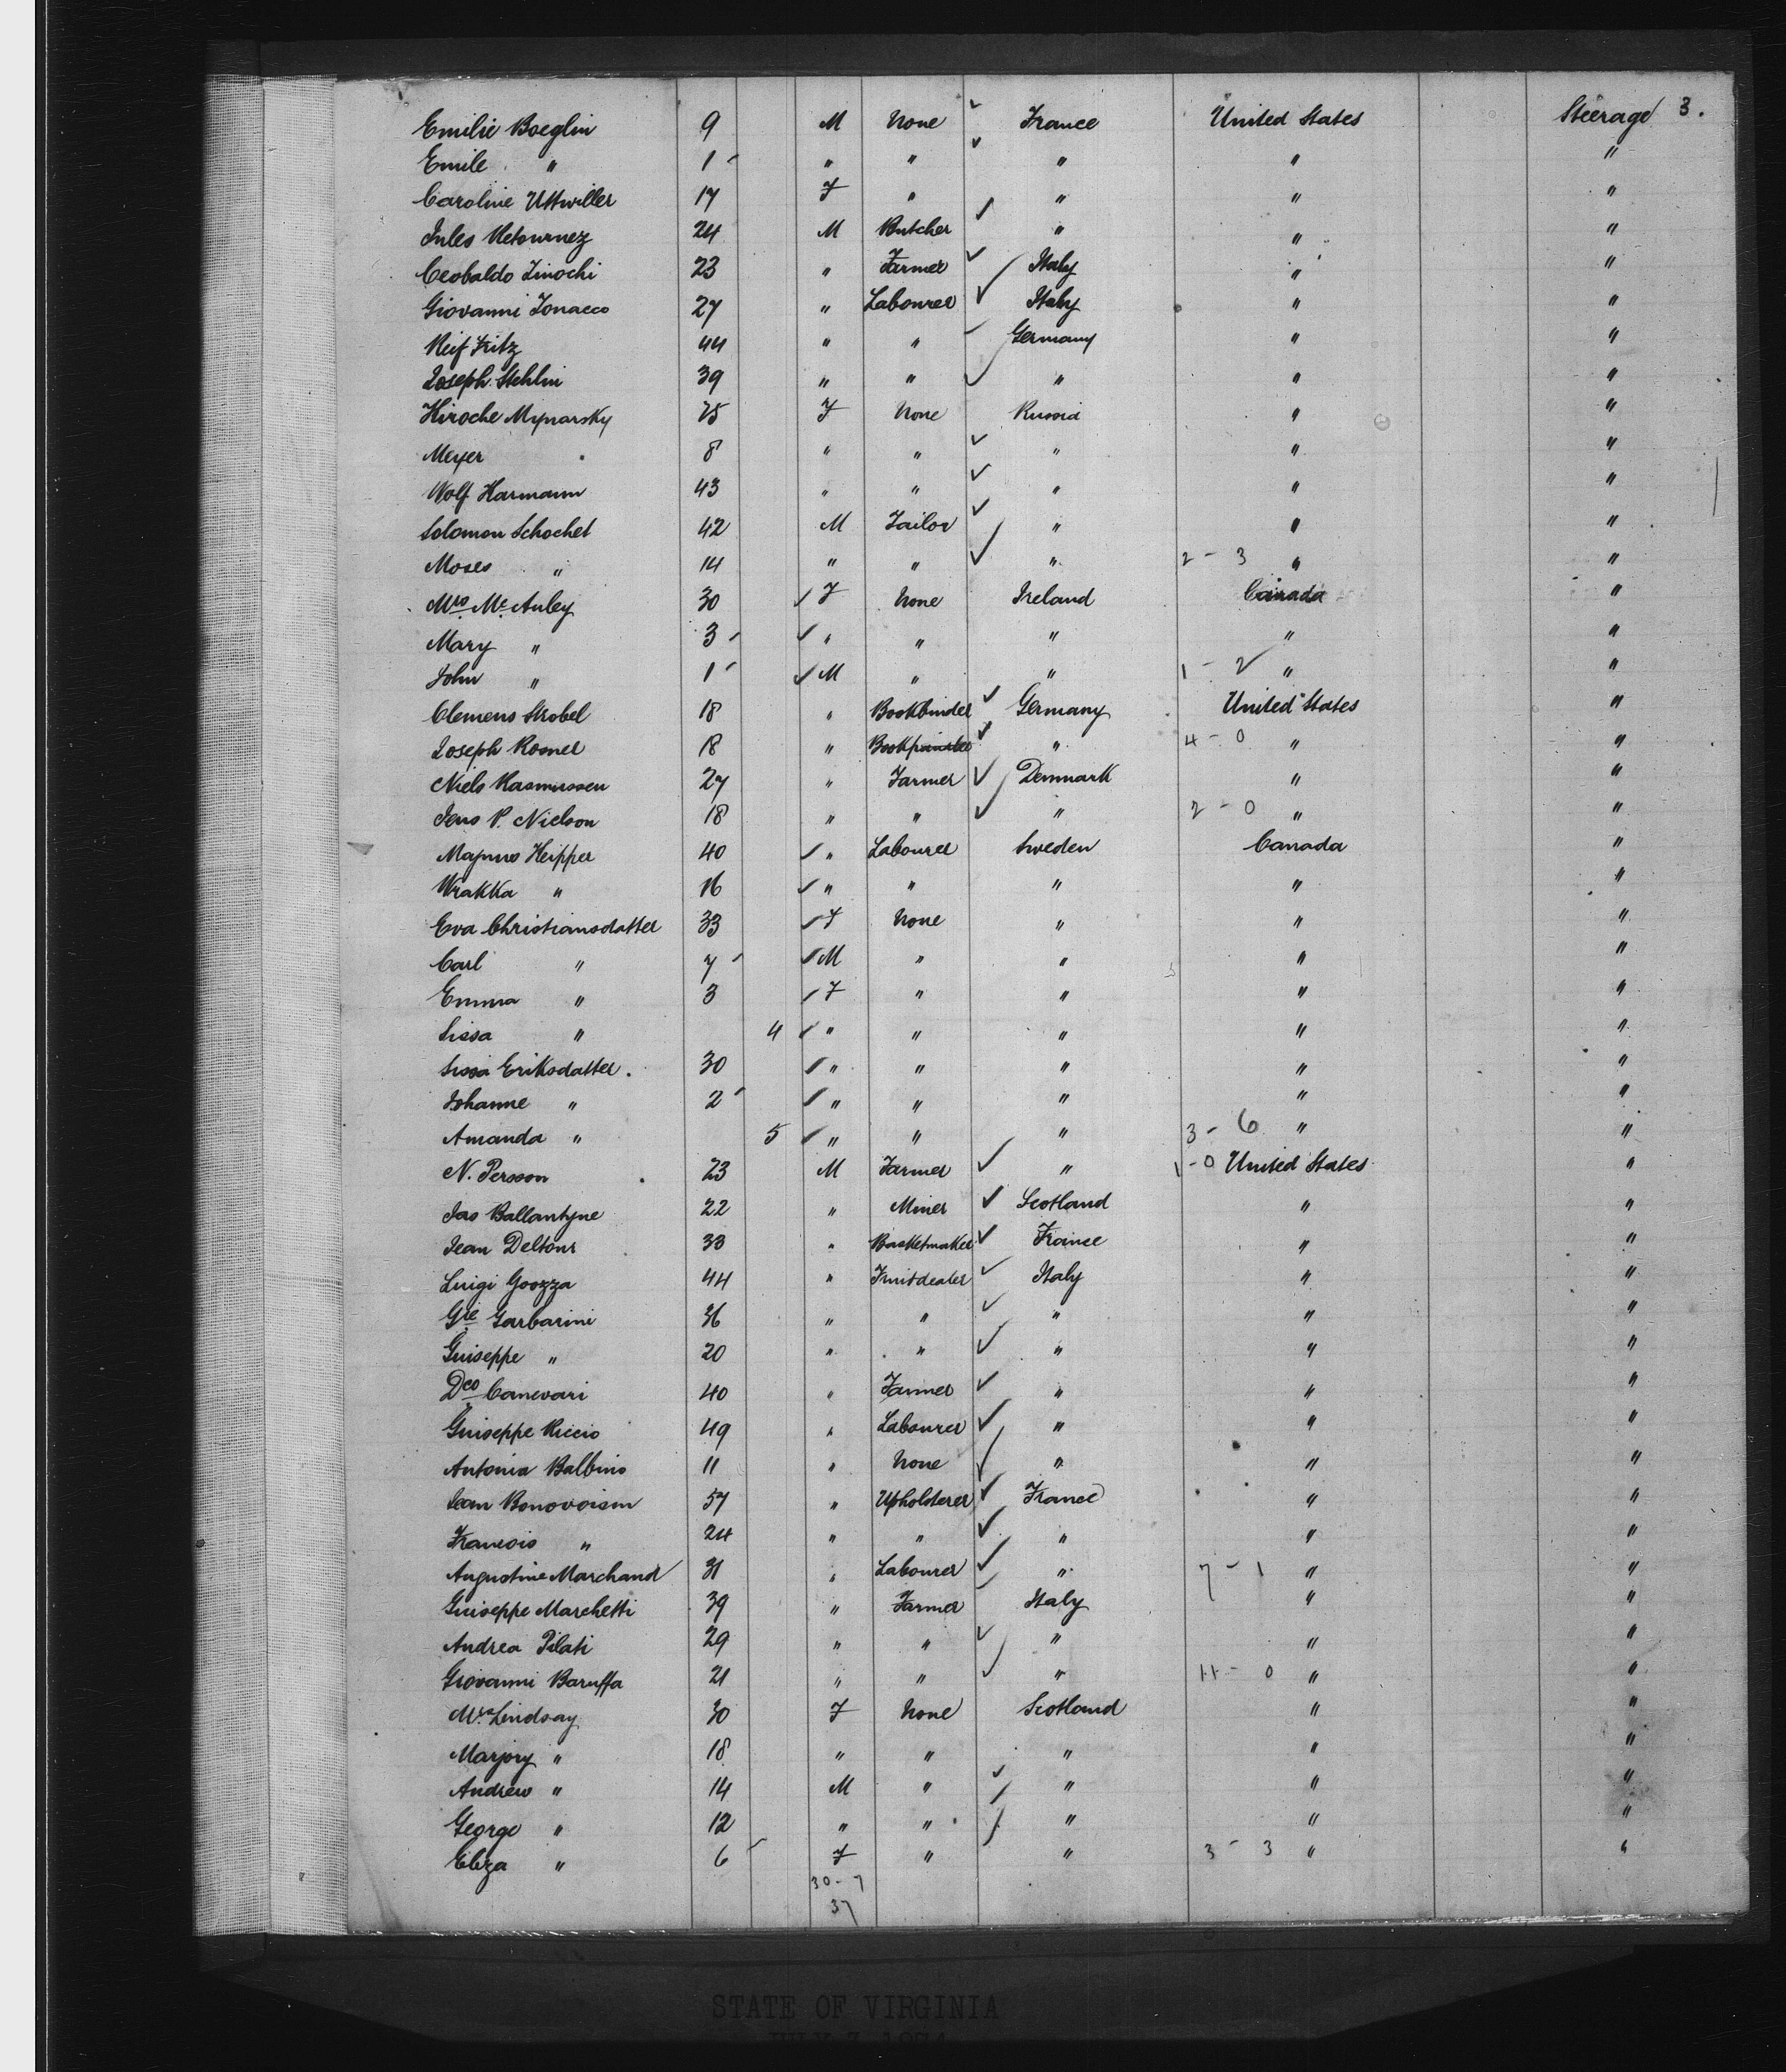 3.
Emilie Boeglin 9 M None France United States Steerage
Emile " 1 " " " " "
Caroline Uttwiller 17 F " " " "
Jules Retournez 24 M Butcher " " "
Ceobaldo Zinochi 23 " Farmer Italy " "
Giovanni Tonacco 27 " Labourer Italy " "
Reif Fritz 44 " " Germany " "
Joseph Stehlin 39 " " " " "
Hiroche Mynarsky 25 F None Russia " "
Meyer 8 " " " " "
Wolf Harmann 43 " " " " "
Solomon Schochet 42 M Tailor " " "
Moses " 14 " " " 2 - 3 " "
Mrs. Mc. Auley 30 F None Ireland Canada "
Mary " 3 " " " " "
John " 1 M " " 1 - 2 " "
Clemens Strobel 18 " Bookbinder Germany United States "
Joseph Romer 18 " Bookprinter " 4 - 0 " "
Niels Rasmussen 27 " Farmer Denmark " "
Jens P. Nielson 18 " " " 2 - 0 " "
Majnus Heipper 40 " Labourer Sweden Canada "
Wrakka " 16 " " " " "
Eva Christiansdatter 33 F None " " "
Carl " 7 M " " " "
Emma " 3 F " " " "
Sissa " 4 " " " " "
Sissa Eriksdatter. 30 " " " " "
Johanne " 2 " " " " "
Amanda " 5 " " " 3 - 6 " "
N. Persson 23 M Farmer " 1 - 0 United States "
Jas Ballantyne 22 " Miner Scotland " "
Jean Deltour 33 " Basketmaker France " "
Luigi Goozza 44 " Fruitdealer Italy " "
Gie Garbarini 36 " " " " "
Guiseppe " 20 " " " " "
Dco Canevari 40 " Farmer " " "
Guiseppe Riccio 49 " Labourer " " "
Antonia Balbino 11 " None " " "
Jean Bonovoisin 57 " Upholsterer France " "
Francois " 24 " " " " "
Augustine Marchand 31 " Labourer " 7 - 1 " "
Guiseppe Marchetti 39 " Farmer Italy " "
Andrea Pilati 29 " " " " "
Giovanni Baruffa 21 " " " 11 - 0 " "
Mrs. Lindsay 30 F None Scotland " "
Marjory " 18 " " " " "
Andrew " 14 M " " " "
George " 12 " " " " "
Eliza " 6 F " " 3 - 3 " "
30 - 7
37
STATE OF VIRGINIA